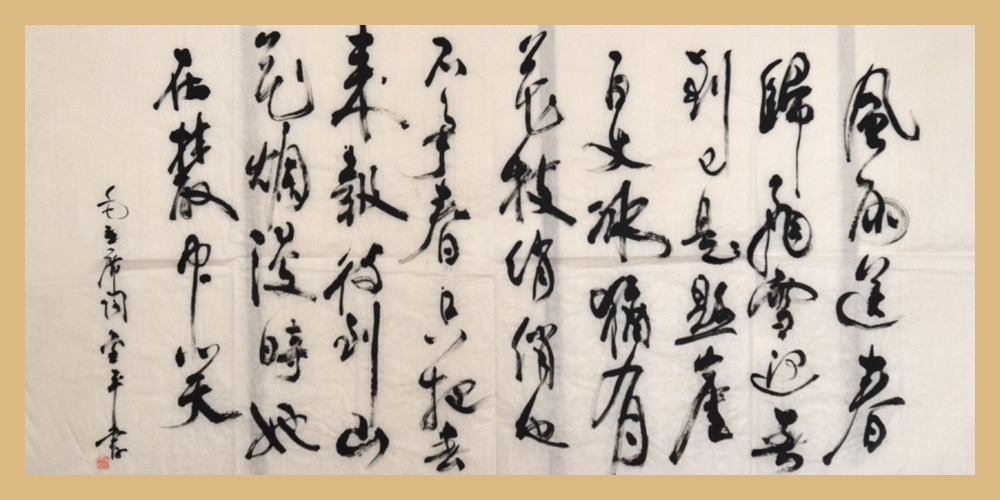 風雨送春
歸飛雪迎春
到已是懸崖
百丈冰猶有
花枝俏俏也
不争春只把春
來報待到山
花爛漫時她
在叢中笑
毛主席詞 平書